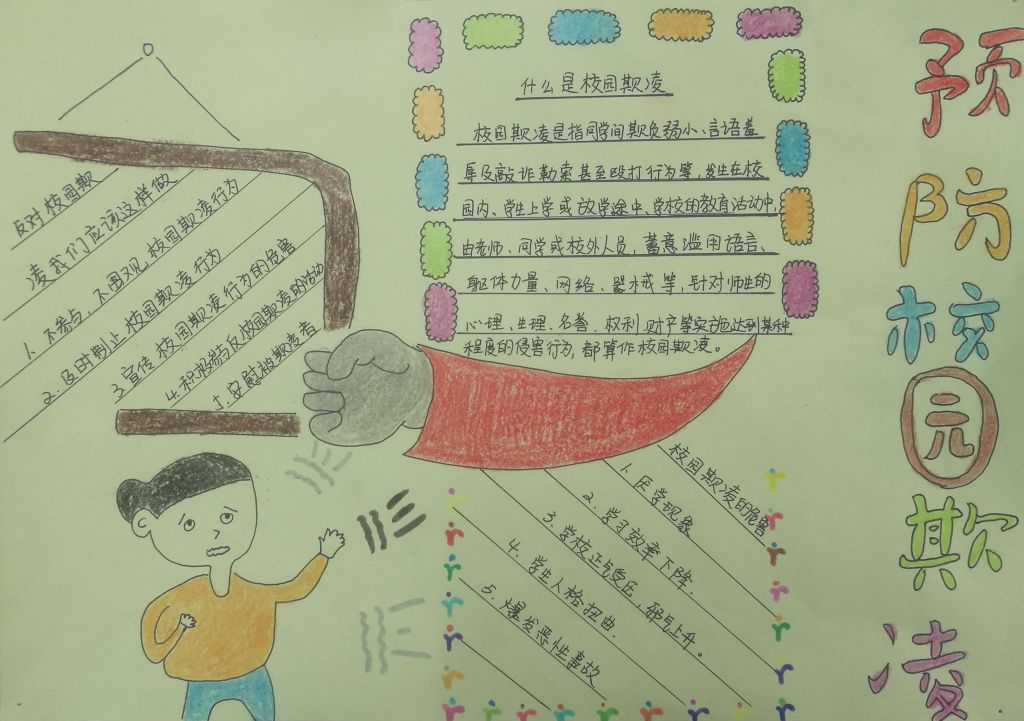 预防校园欺凌
什么是校园欺凌
校园欺凌是指同学间欺负弱小、言语羞
辱及敲诈勒索甚至殴打行为等，发生在校
园内、学生上学或放学途中、学校的教育活动中，
由老师、同学或校外人员，蓄意滥用语言、
躯体力量、网络、器械等，针对师生的
心理、生理、名誉、权利、财产等实施达到某种
程度的侵害行为，都算作校园欺凌。
反对校园欺
凌我们应该这样做
1、不参与，不围观校园欺凌行为
2、及时制止校园欺凌行为
3、宣传校园欺凌行为的危害
4、积极参与反校园欺凌的活动
5、安慰被欺者
校园欺凌的危害
1、厌学现象
2、学习效率下降.
3、学校正气受压，邪气上升。
4、学生人格扭曲.
5、爆发恶性事故